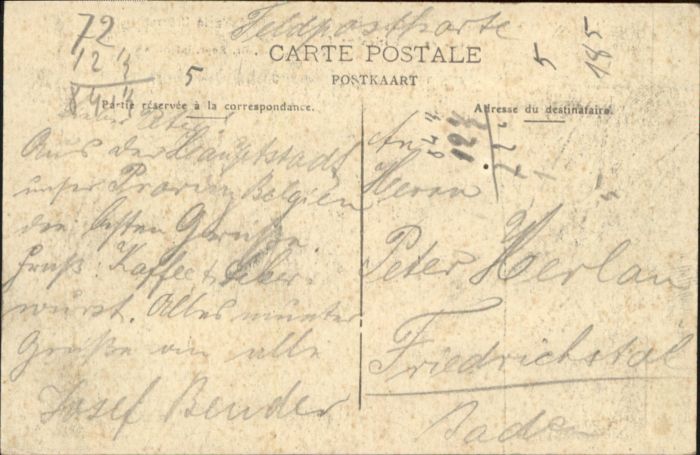 Feldpostkarte
CARTE POSTALE
POSTKAART
Partie réservée à la correspondance.
Adresse du destinataire.
72
12 4
84 4
5
5
185
124
Lieber Peter!
Aus der Hauptstadt
unser Provinz Belgien
die besten Grüße.
Kaffee & Leber-
wurst. Alles munter
Grüße an alle
Josef Bender
An
Herrn
Peter Herlan
Friedrichstal
Baden